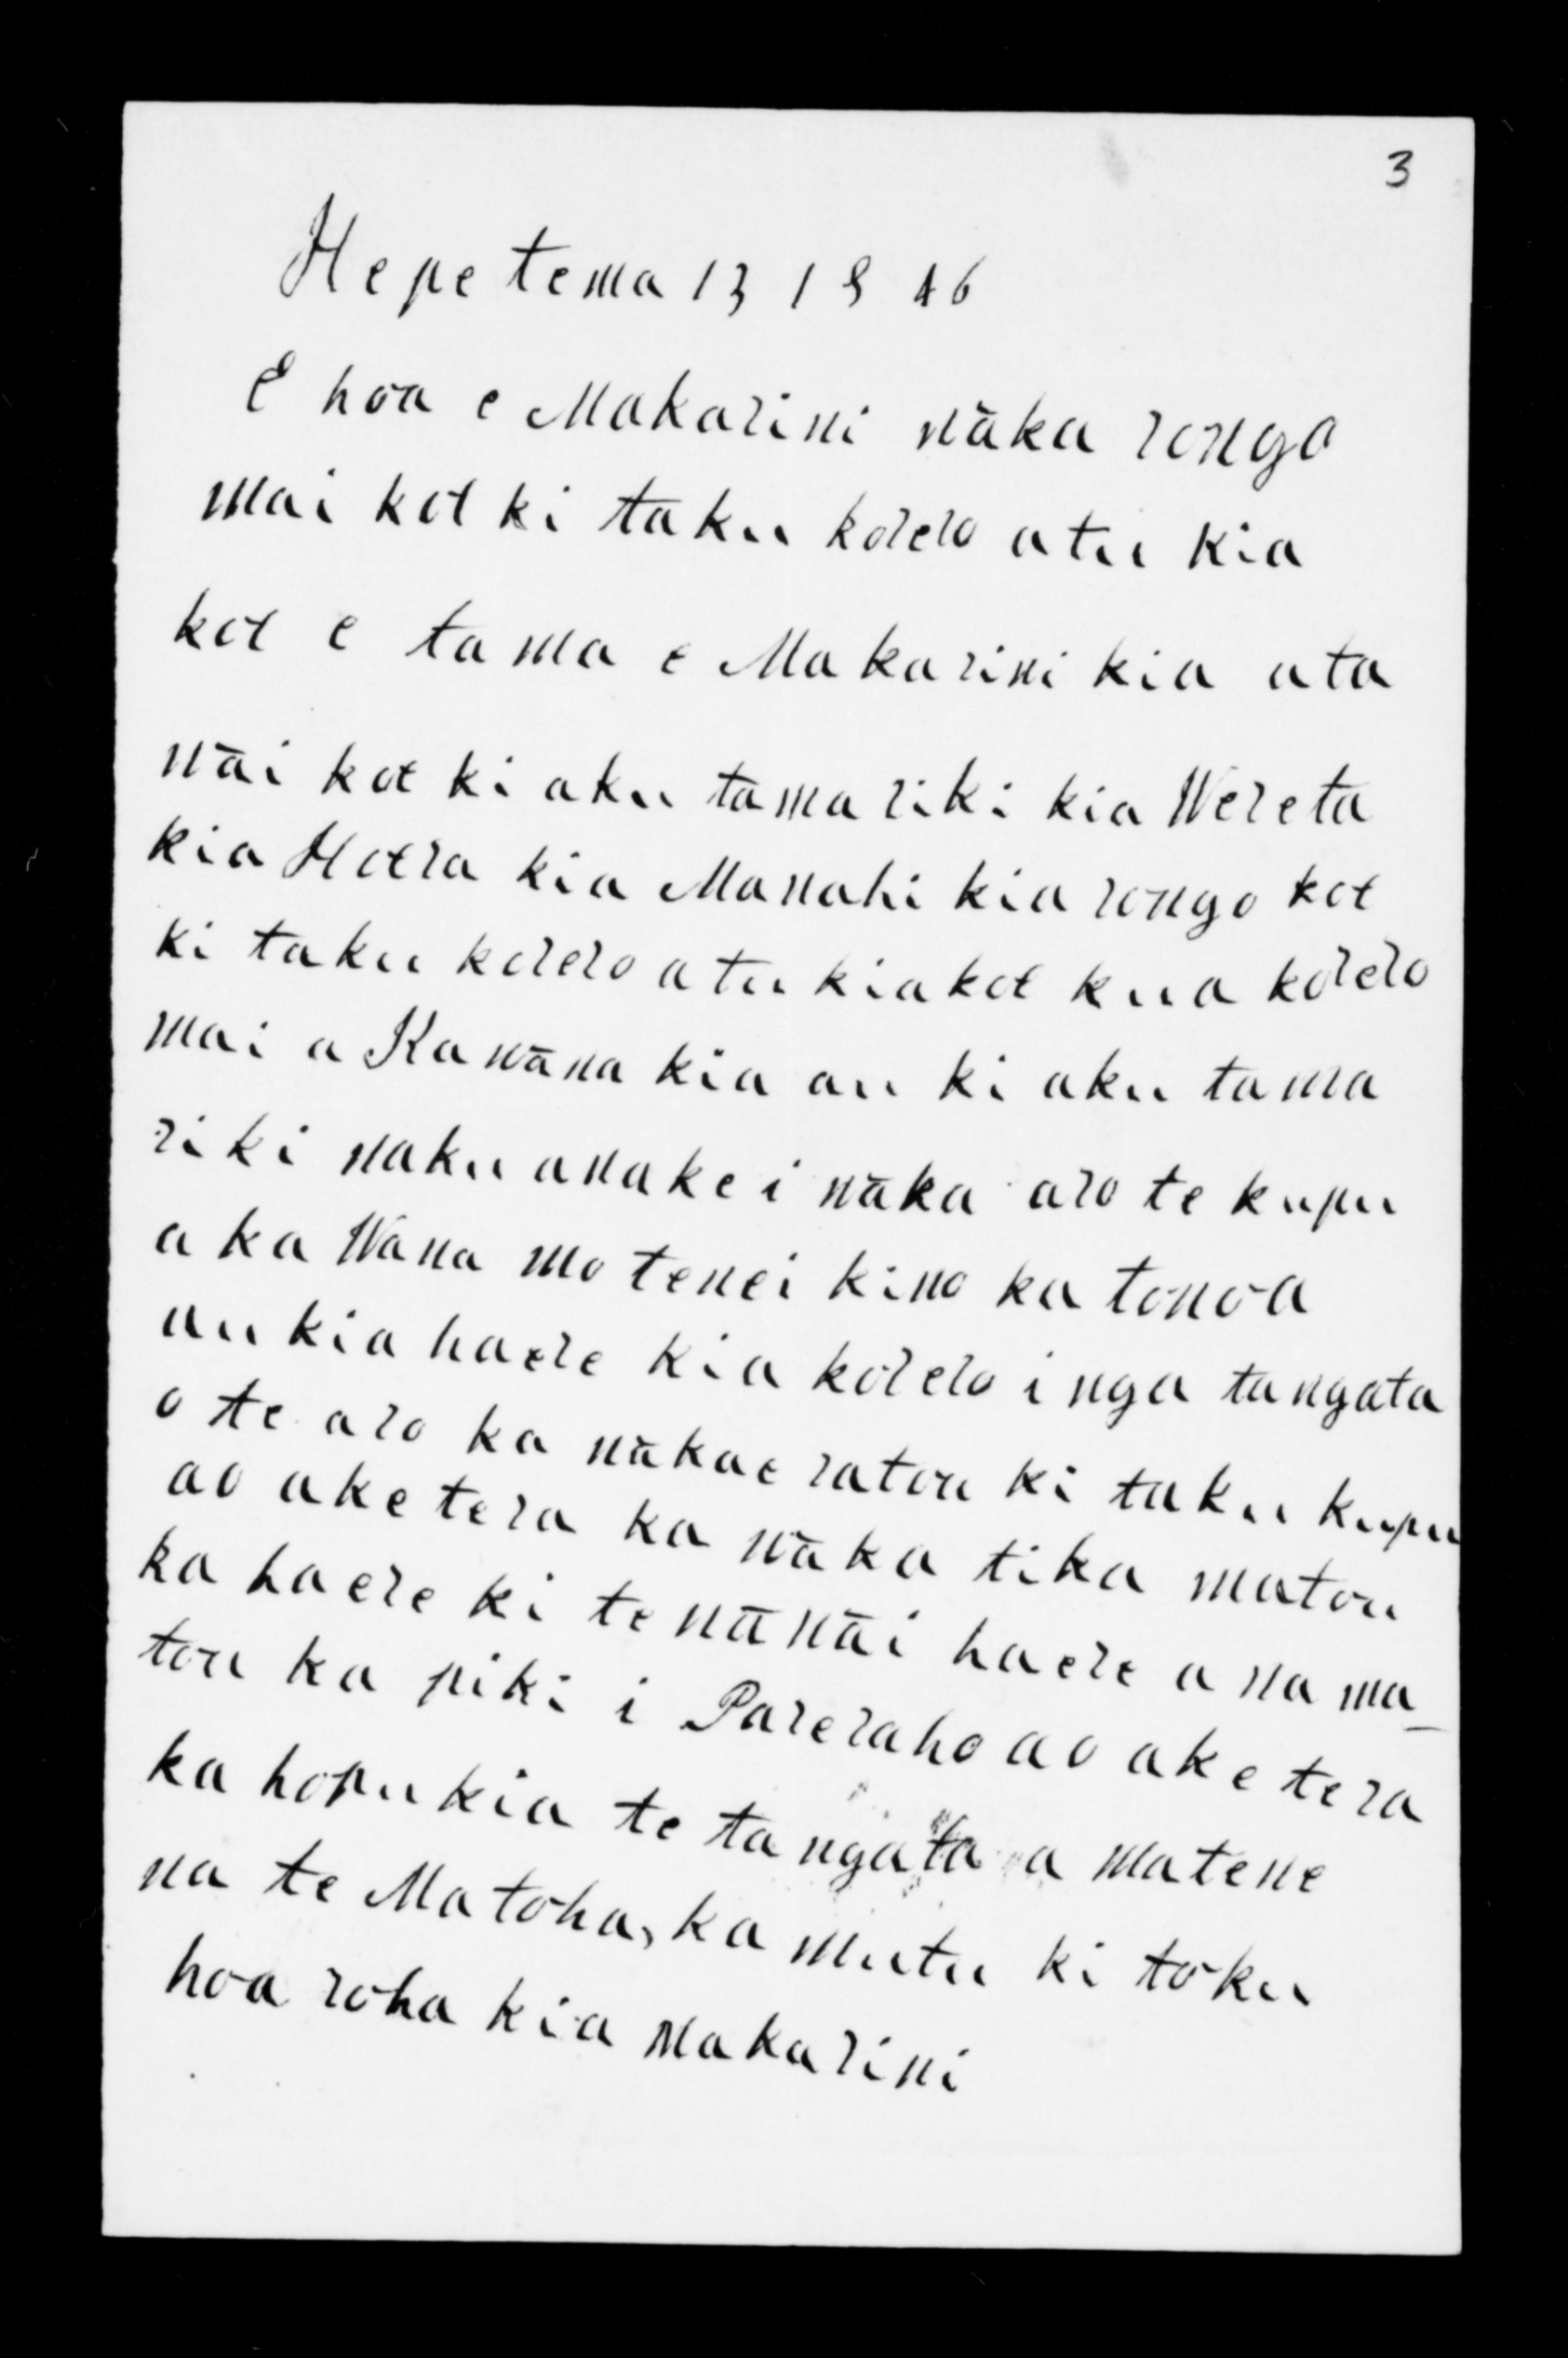 3
Hepetema 13 1846
E hoa e Makarini wāka rongo
mai koe ki taku korero atu kia
koe e tama e Makarini kia ata
wāi koe ki aku tamariki kia Wereta
kia Hoera kia Manahi kia rongo koe
ki taku korero atu kia koe kua korero
mai a Kawāna kia au ki aku tama
riki naku anake i wāka aro te kupu
a ka Wāna mo tenei kino ka tonoa
au kia haere kia korero i nga tangata
o te aro ka wākae ratou ki taku kupu
ao ake te ra ka wāka tika matou
ka haere ki te wāwāi haere ana ma_
tou ka piki i Pareraho ao ake te ra
ka hopukia te tangata a matene
na te Matoha, ka mutu ki toku
hoa roha kia Makarini